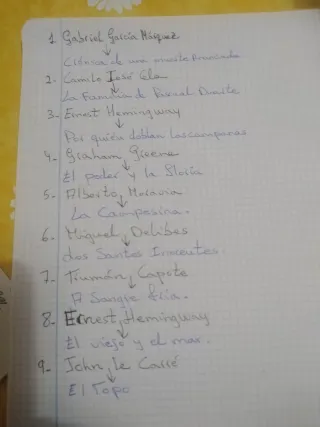 1. Gabriel García Márquez
Crónica de una muerte anunciada
2- Camilo José Cela
La Familia de Pascual Duarte
3- Ernest Hemingway
Por quién doblan las campanas
4- Graham Greene
El poder y la Gloria
5- Alberto Moravia
La Campesina.
6- Miguel Delibes
Los Santos Inocentes.
7- Truman Capote
A Sangre fría.
8- Ernest Hemingway
El viejo y el mar.
9- John le Carré
El Topo